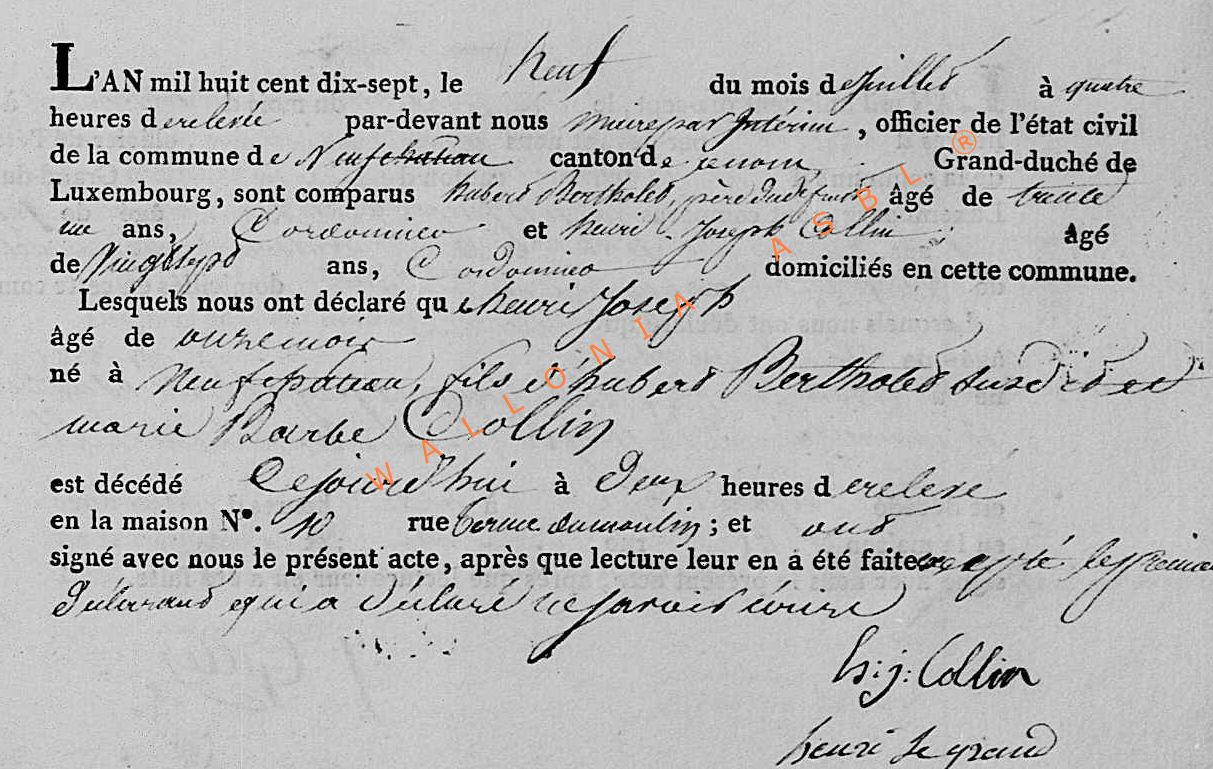 L'AN mil huit cent dix-sept, le neuf du mois de juillet à quatre
heures de relevée par-devant nous maire par Intérim, officier de l'état civil
de la commune de Neufchateau canton de ce nom Grand-duché de
Luxembourg, sont comparus hubert Bertholet, père du defunt âgé de trente
un ans, Cordonnier et henri Joseph Collin, âgé
de Vingt sept ans, Cordonnier domiciliés en cette commune.
Lesquels nous ont déclaré que henri Joseph
âgé de onze mois
né à Neufchateau, fils d'hubert Bertholet susdit et
marie Barbe Collin
est décédé Cejourd'hui à Deux heures de relevé
en la maison N°. 10 rue terme du moulin; et ont
signé avec nous le présent acte, après que lecture leur en a été faite excepté le premier
Déclarant qui a déclaré ne savoir écrire
h: j: Collin
henri le grand
WALLONIA ASBL ®